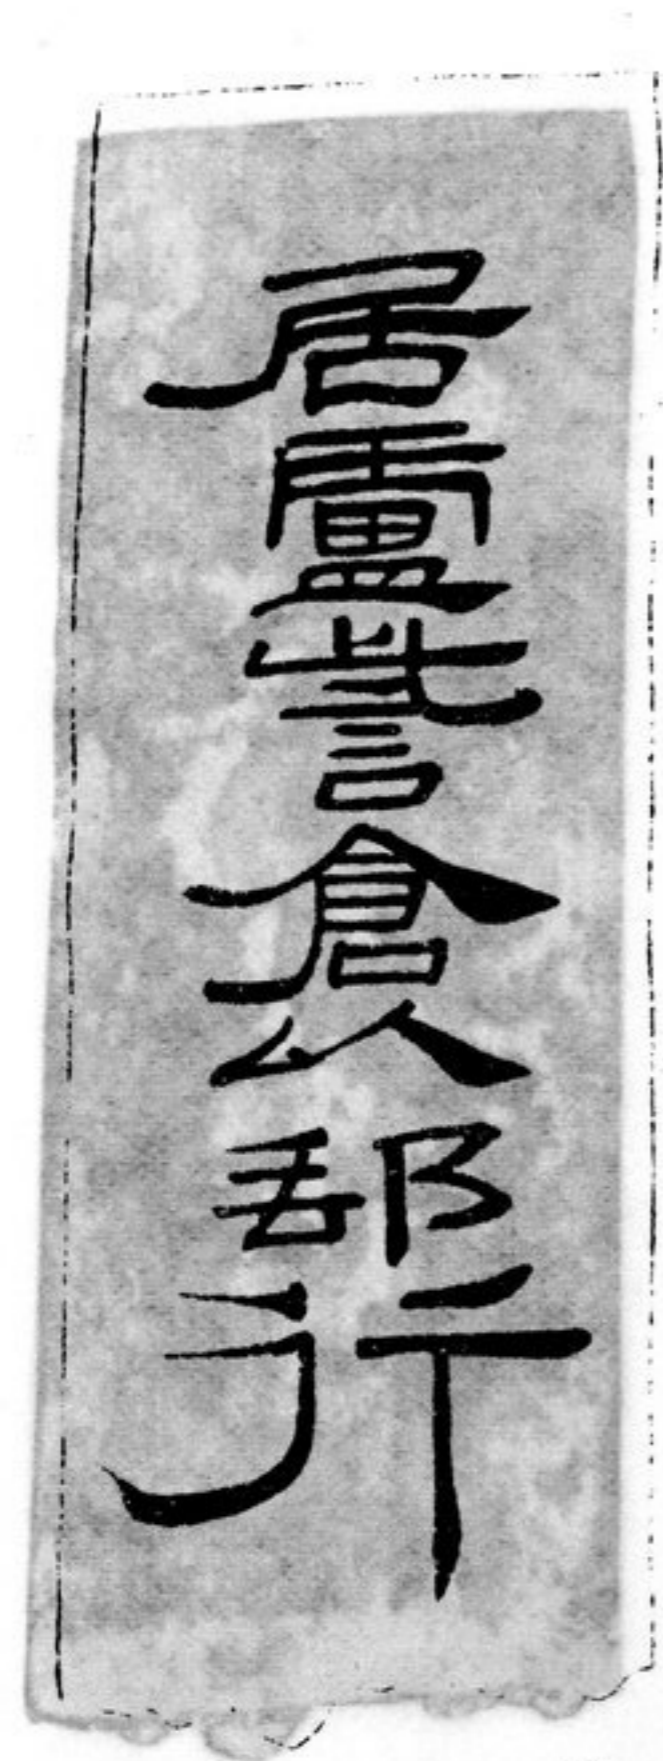 居盧訾倉以郵行